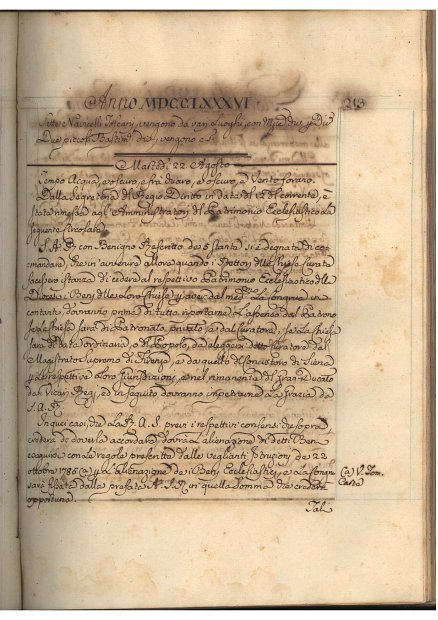 Anno MDCCLXXXVI 213
Sette Navicelli Toscani, vengono da varj Luoghi, con
Due piccoli Bastim. div. vengono
Martedì 22 Agosto
Tempo Acqua, e oscuro, e frà chiaro, e oscuro, a Vento foraneo
Dalla Segreteria del Regio Diritto in data del 12 del corrente, è
stata rimessa agl' Amministratori del Patrimonio Ecclesiastico la
seguente circolare
S. A. R. con Benigno Rescritto de 5 stante si è degnata di co-
mandare, che in avvenire allora quando i Rettori delle Chiese Curate
facessero istanza di cedere al rispettivo Patrimonio Ecclesiastico della
Diocesi i Beni delle Loro Chiese, e aver dal med. La Congrua in
contante, dovranno prima di tutto riportarne L'assenso dal Padrone
se la Chiesa sarà di Patronato privato, e dal Curatore, se la Chiesa
sarà di Data ordinaria, o di Popolo, da eleggersi detto Curatore dal
Magistrato Supremo di Firenze, e da quello del Concistoro di Siena
per le rispettive Loro Giurisdizioni, e nel rimanente del Gran Ducato
dai Vicarj Regj, ed in seguito dovranno impetrarne La Grazia da
S. A. R.
In quei casi, che La R. A. S. previ i rispettivi consensi che sopra,
crederà de doverla accordare, dovrà L'alienazione di detti Beni
eseguirsi con le regole prescritte dalle veglianti Istruzioni de 22
ottobre 1785 (a) per L'alienazione de i Beni Ecclesiastici, e La Congrua
sarà fissata dalla prefata A. S. R. in quella Somma che crederà
opportuna.
(a) V. Tom.
Carta
Tali